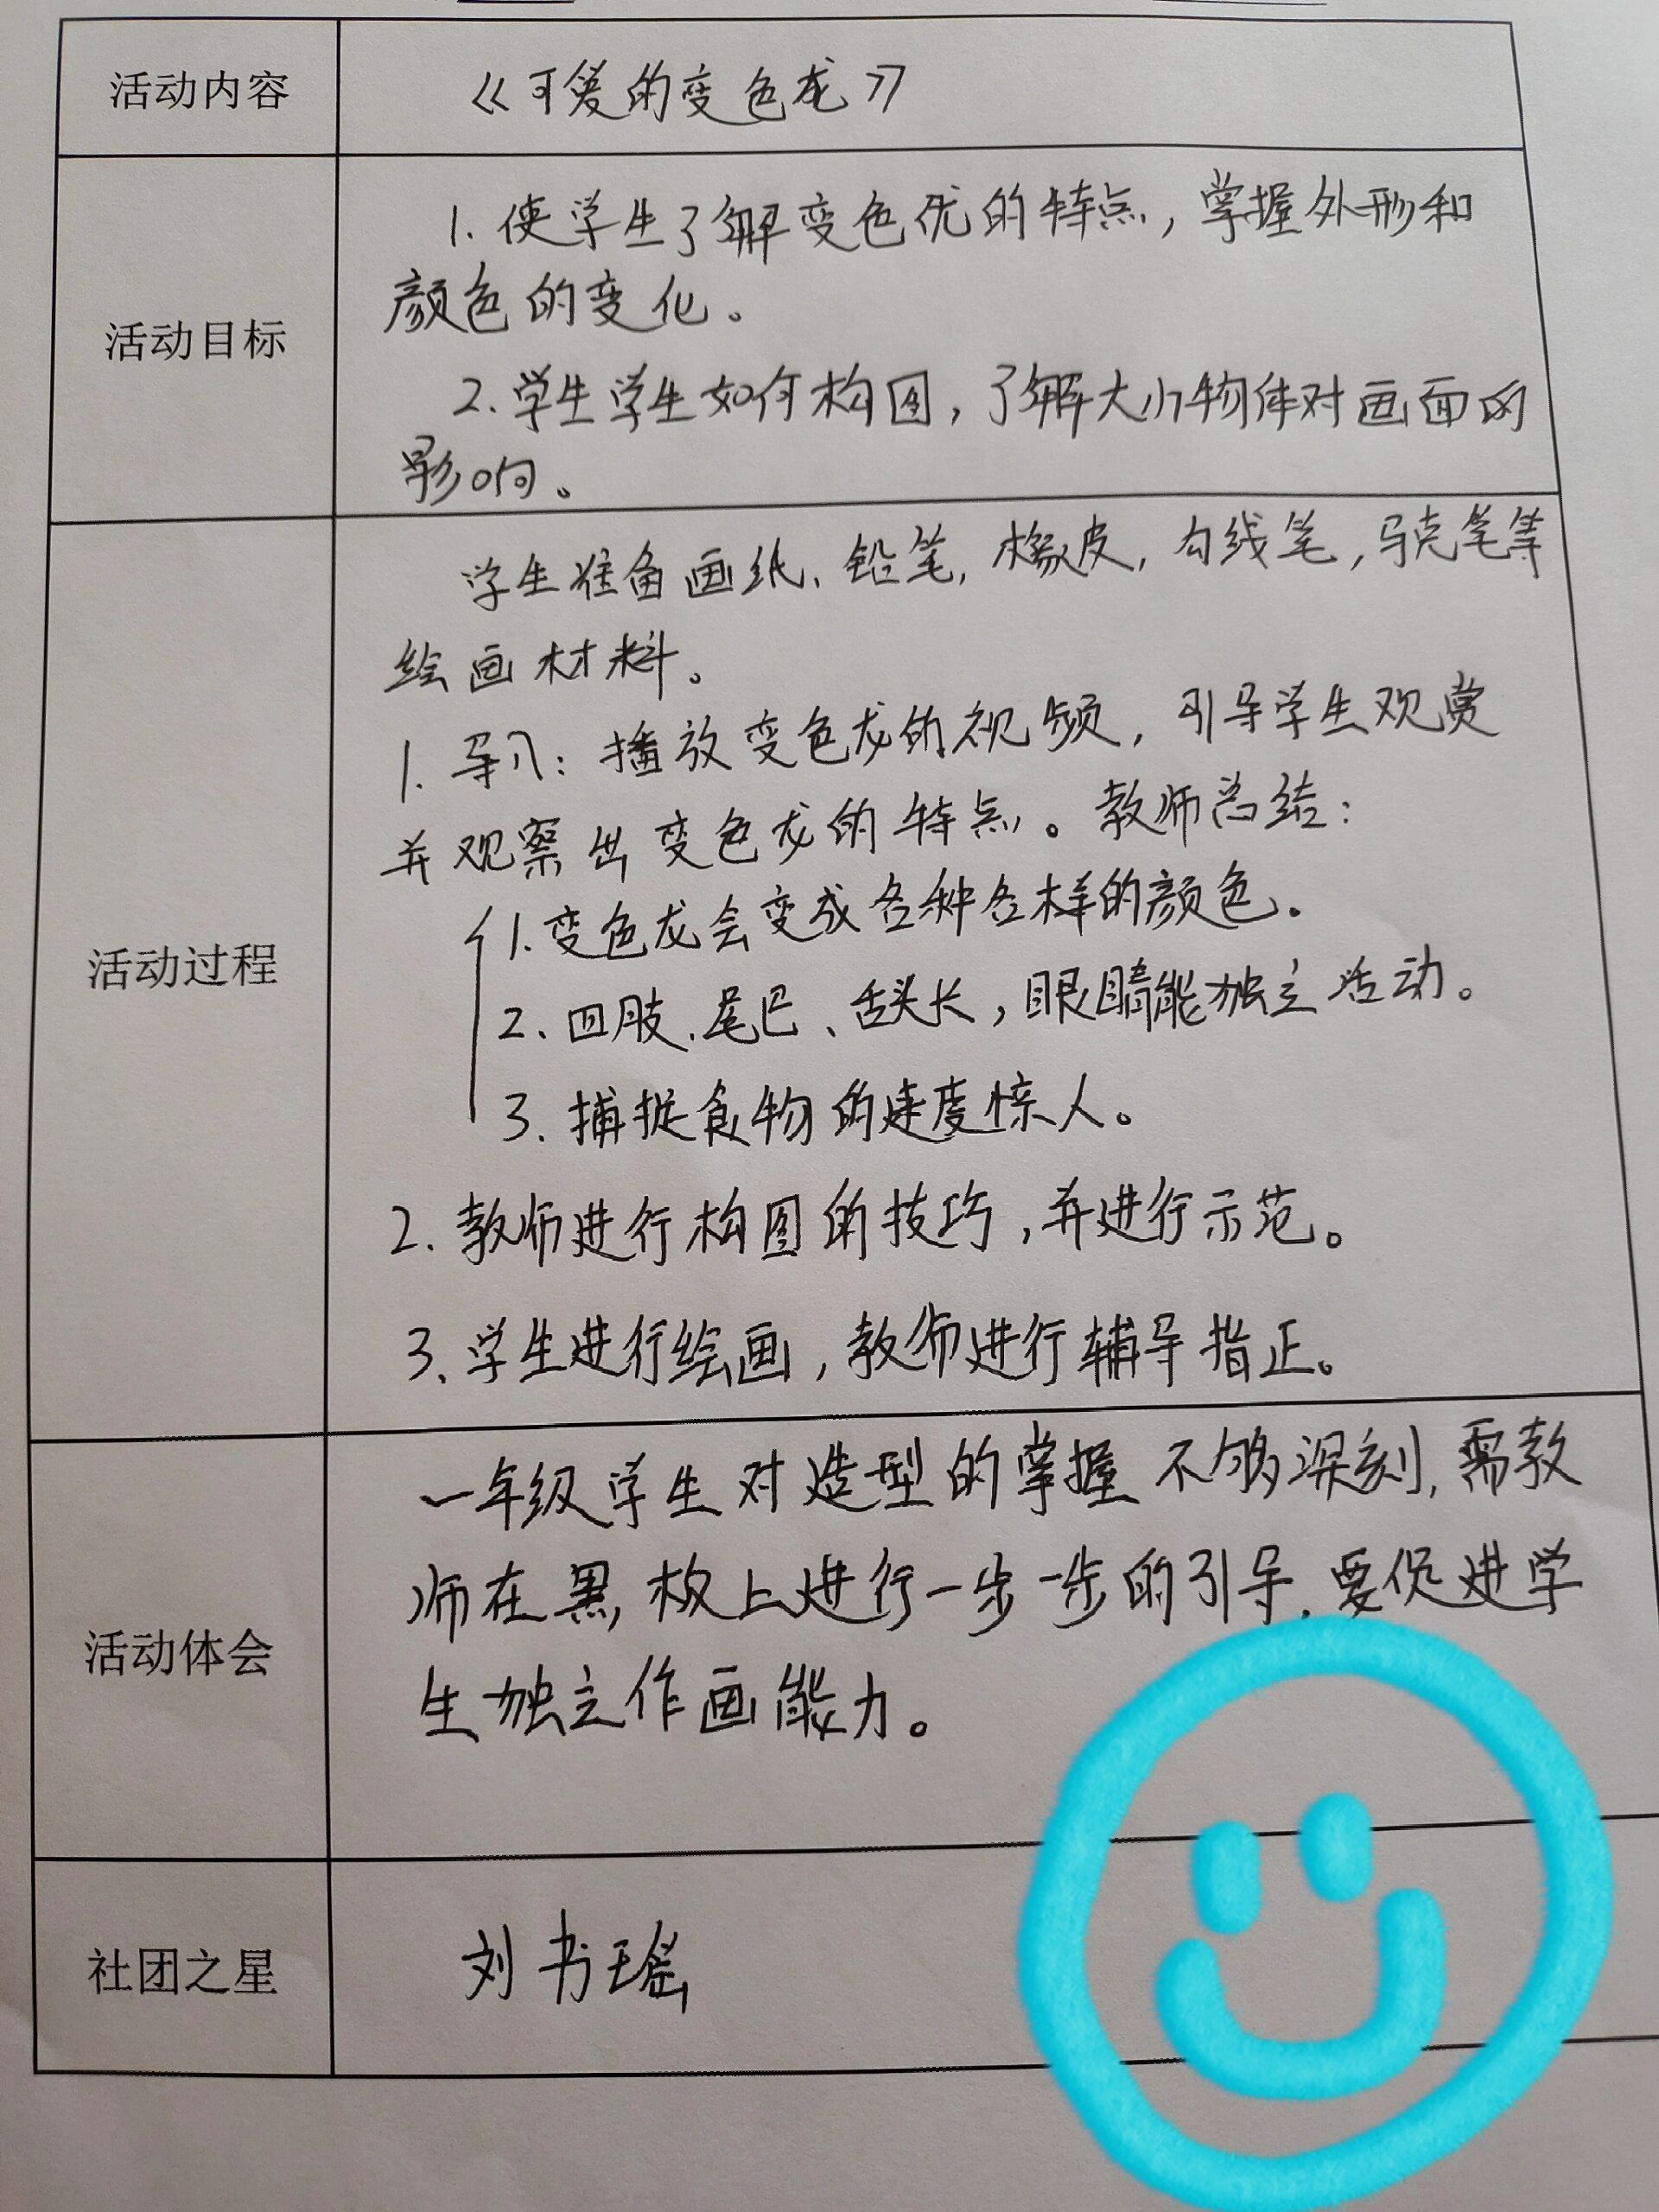 活动内容
《可爱的变色龙》
活动目标
1. 使学生了解变色优的特点，掌握外形和
颜色的变化。
2. 学生学生如何构图，了解大小物体对画面的
影响。
活动过程
学生准备画纸、铅笔，橡皮，勾线笔，马克笔等
绘画材料。
1. 导入：播放变色龙的视频，引导学生观赏
并观察出变色龙的特点。教师总结：
1. 变色龙会变成各种各样的颜色。
2、四肢、尾巴、舌头长，眼睛能独立活动。
3. 捕捉食物的速度惊人。
2. 教师进行构图的技巧，并进行示范。
3、学生进行绘画，教师进行辅导指正。
活动体会
一年级学生对造型的掌握不够深刻，需教
师在黑板上进行一步一步的引导，要促进学
生独立作画能力。
社团之星
刘书瑶